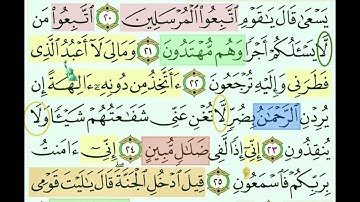 يَسْعَىٰ قَالَ يَـٰقَوْمِ ٱتَّبِعُوا۟ ٱلْمُرْسَلِينَ ٢٠ ٱتَّبِعُوا۟ مَن
لَّا يَسْـَٔلُكُمْ أَجْرًا وَهُم مُّهْتَدُونَ ٢١ وَمَا لِىَ لَآ أَعْبُدُ ٱلَّذِى
فَطَرَنِى وَإِلَيْهِ تُرْجَعُونَ ٢٢ ءَأَتَّخِذُ مِن دُونِهِۦٓ ءَالِهَةً إِن
يُرِدْنِ ٱلرَّحْمَـٰنُ بِضُرٍّ لَّا تُغْنِ عَنِّى شَفَـٰعَتُهُمْ شَيْـًٔا وَلَا
يُنقِذُونِ ٢٣ إِنِّىٓ إِذًا لَّفِى ضَلَـٰلٍ مُّبِينٍ ٢٤ إِنِّىٓ ءَامَنتُ
بِرَبِّكُمْ فَٱسْمَعُونِ ٢٥ قِيلَ ٱدْخُلِ ٱلْجَنَّةَ قَالَ يَـٰلَيْتَ قَوْمِى